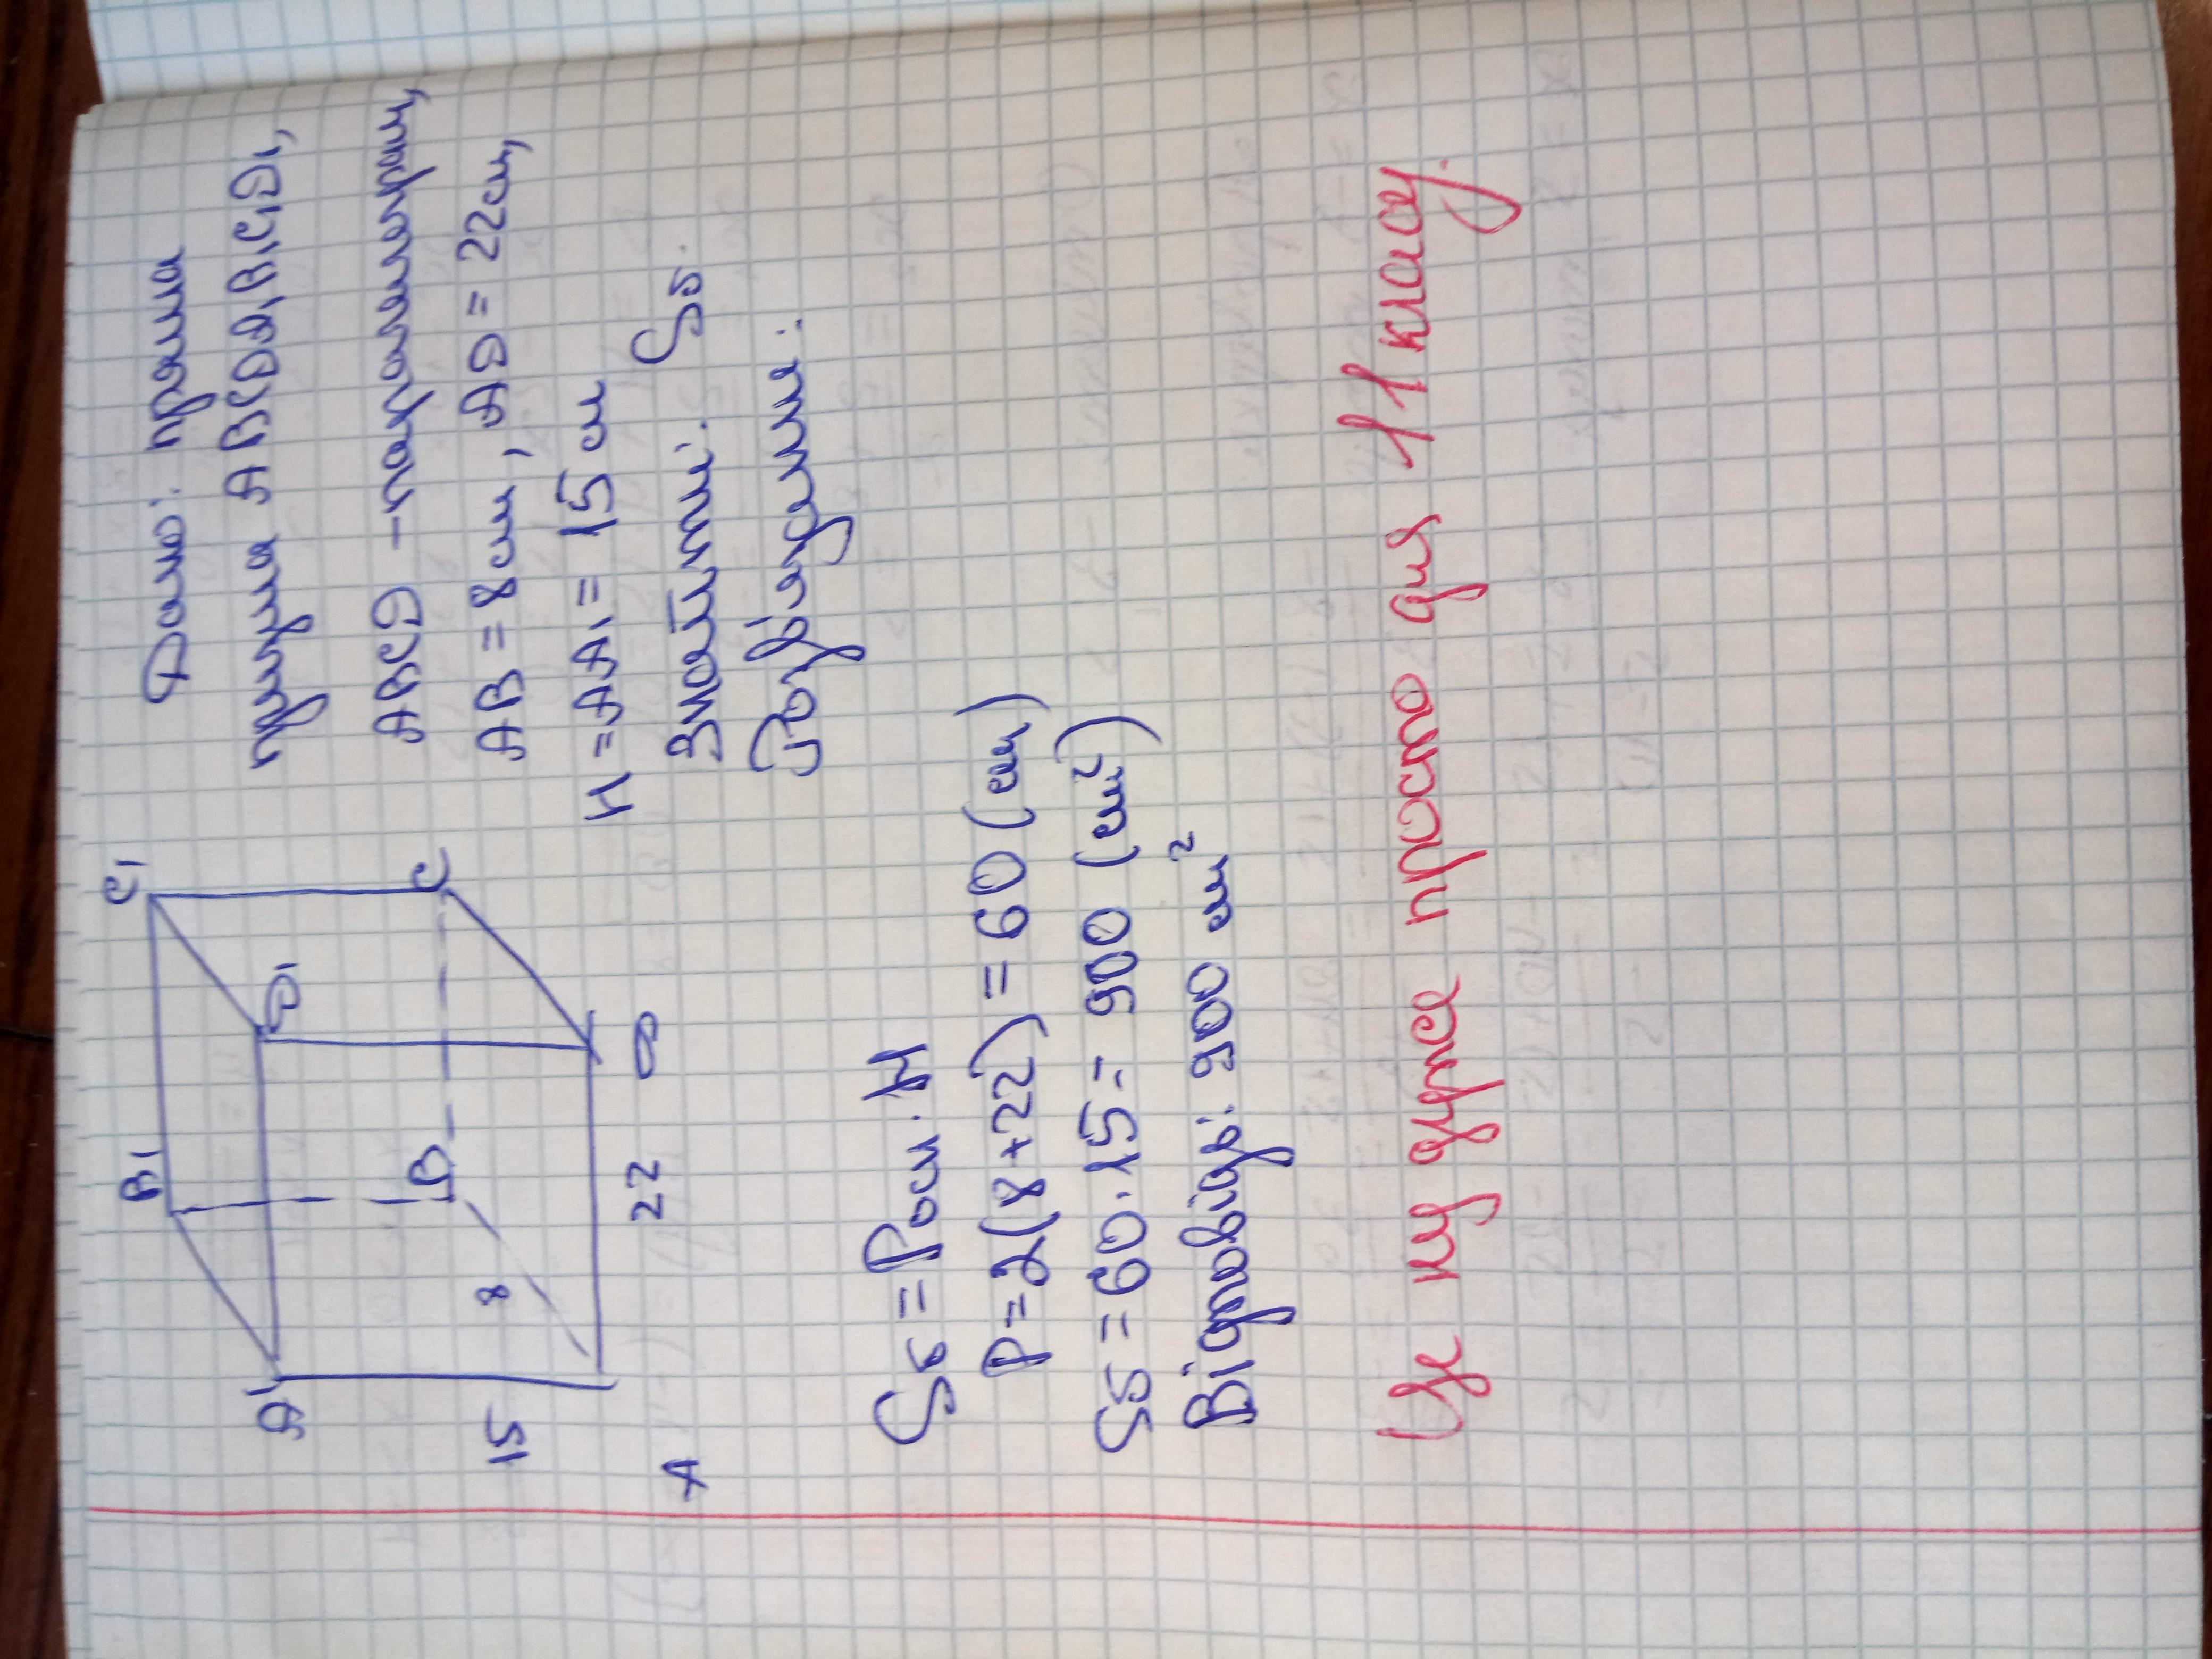 Дано: пряма
призма ABCDA1B1C1D1,
ABCD - паралелограм,
AB = 8см, AD = 22см,
H = AA1 = 15 см
Знайти: Sб.
Розв'язання:
B1
C1
A1
D1
15
8
B
C
A
22
D
Sб = Pосн · H
P = 2(8+22) = 60 (см)
Sб = 60 · 15 = 900 (см²)
Відповідь: 900 см²
Це ну дуже просто для 11 класу.